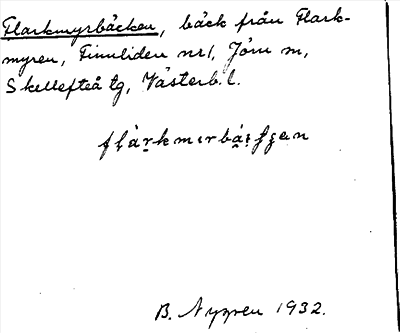 Flarkmyrbäcken, bäck från Flark-
myren, Finnliden nr 1, Jörn sn,
Skellefteå tg, Västerb. l.
B. Nygren 1932.